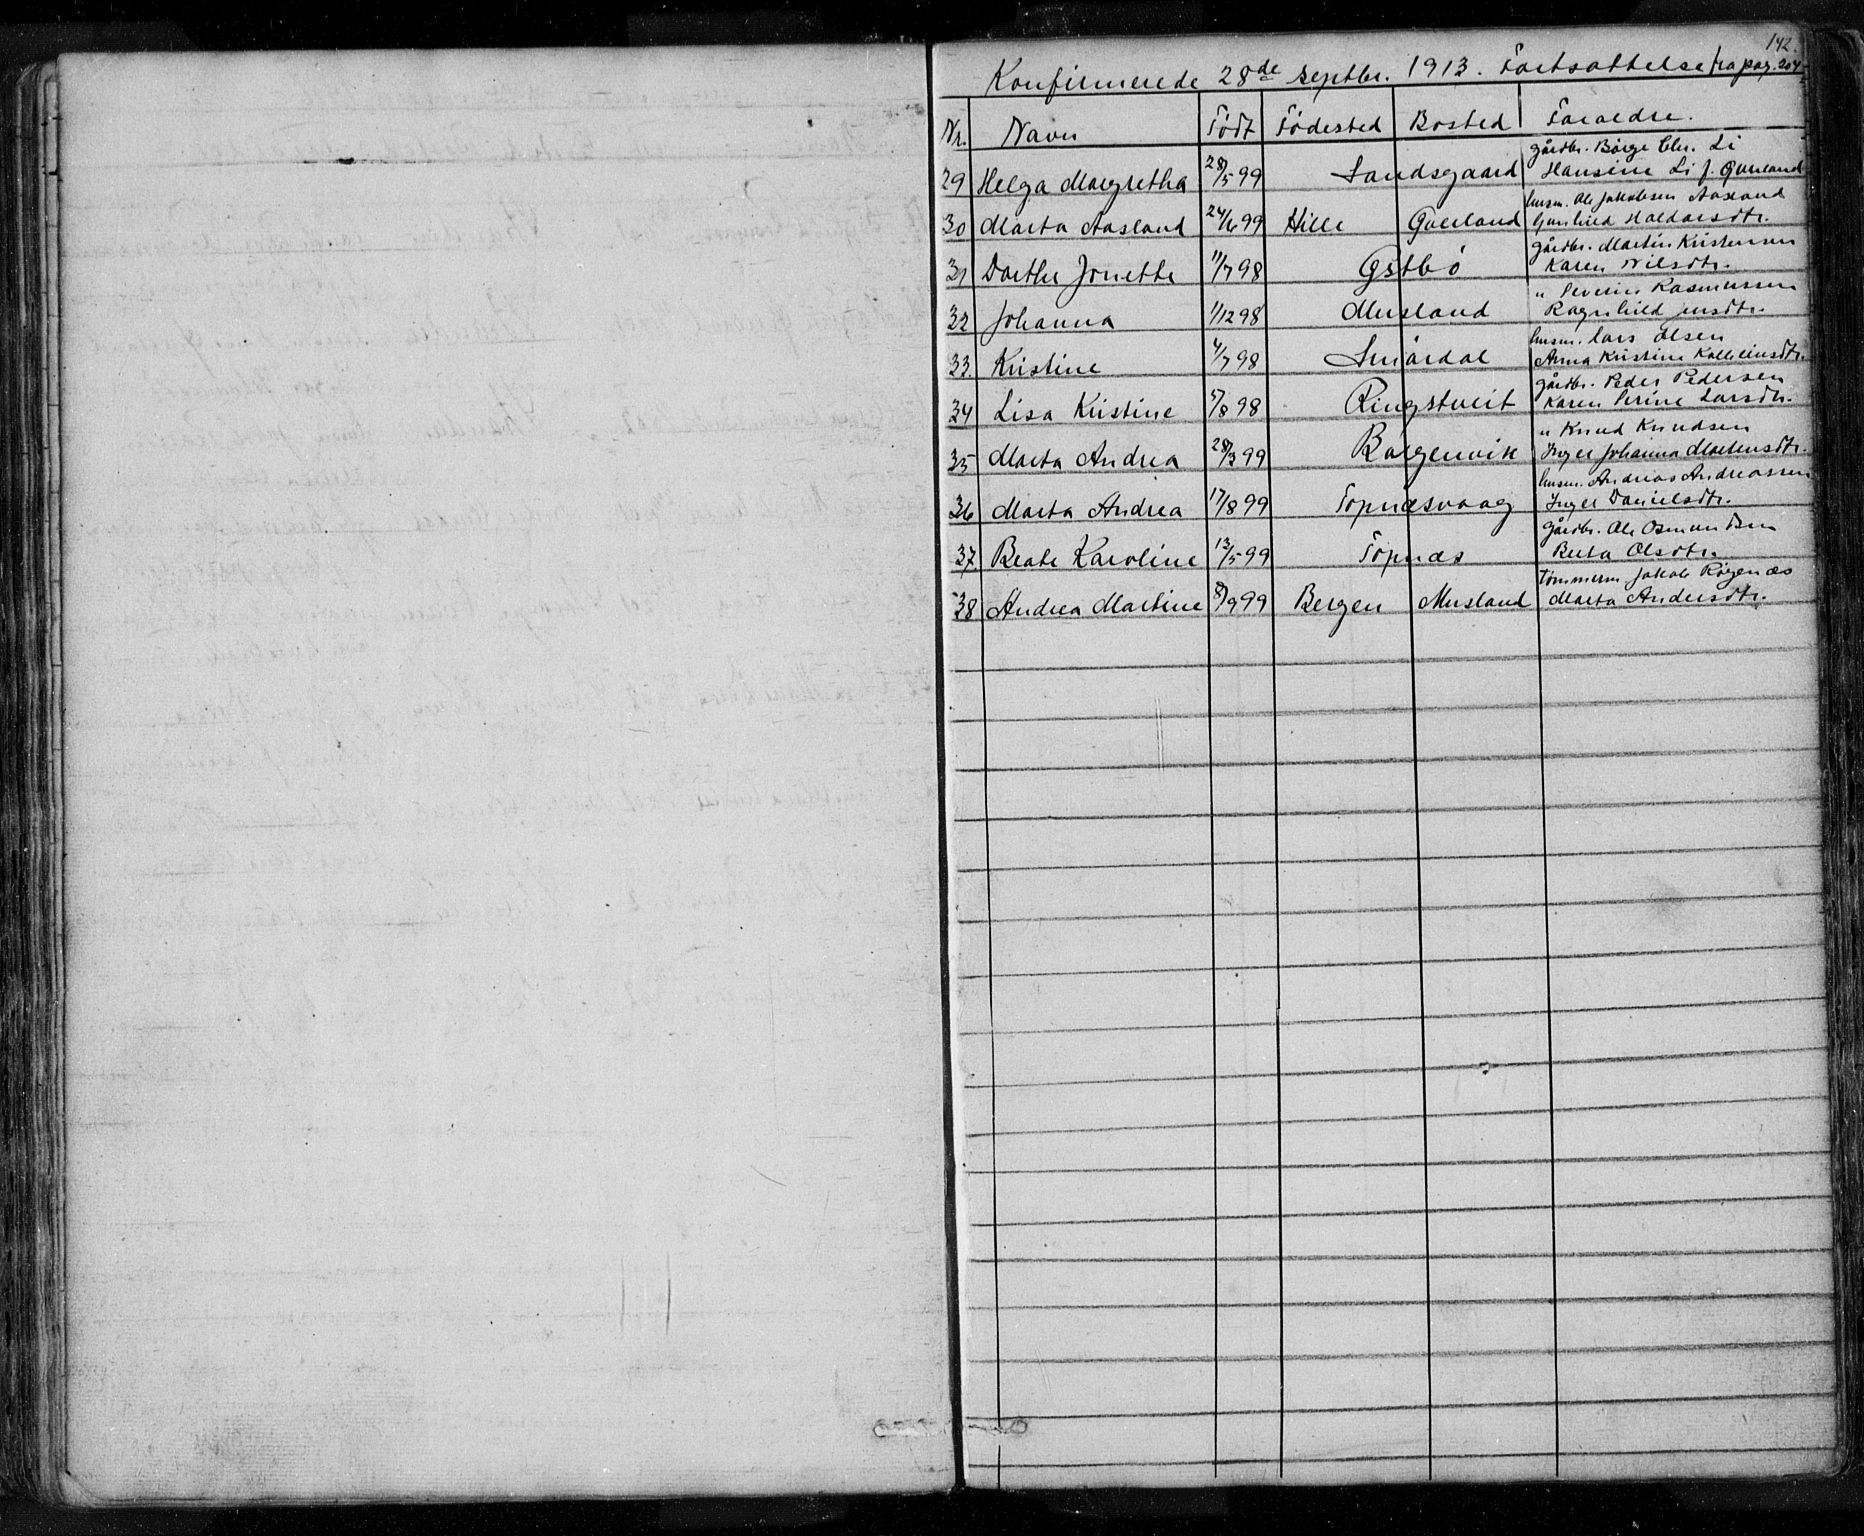 142.
Konfirmerede 28de septbr. 1913. Fortsættelse fra pag. 204
Nr. Navn Födt Födested Bosted Foræeldre.
gårdbr. Börge Chr. Li
29 Helga Margretha 28/5 99 Sandsgaard Hansine Li f. Qverland
husm. Ole Jakobsen Aasland
30 Marta Aasland 24/6 99 Hille Gunhild Haldorsdtr.
gårdbr. Martin Kristensen
31 Dorthe Jonette 11/7 98 Östbö Karen Nilsdtr.
" Severin Rasmussen
32 Johanna 1/12 98 Musland Ragnhild
husm. Lars Olsen
33 Kristine 4/7 98 Smördal Anna Kristine
gårdbr. Peder Pedersen
34 Lisa Kristine 5/8 98 Ringstveit Karen Serine Larsdtr.
" Knud Knudsen
35 Marta Andrea 28/3 99 Borgenvik Inger Johanna Mortensdtr.
husm. Andreas Andreassen
36 Marta Andrea 17/8 99 Topnæsvaag Inger Danielsdtr.
gårdbr. Ole Osmundsen
37 Beate Karoline 13/5 99 Topnæs Berta Olsdtr.
Tømmerm. Jakob Røgenæs
38 Andrea Martine 8/9 99 Bergen Musland Marta Andersdtr.